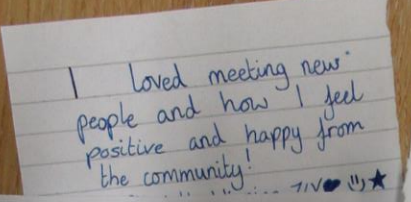 I loved meeting new
people and how I feel
positive and happy from
the community!